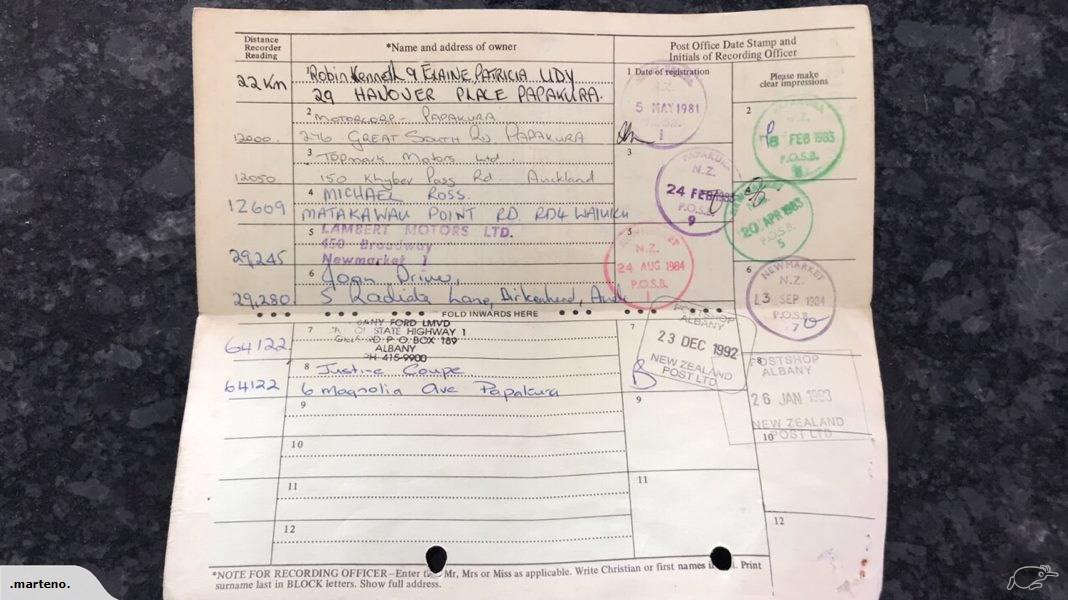 Distance
Recorder
Reading
*Name and address of owner
Post Office Date Stamp and
Initials of Recording Officer
1 Date of registration
Please make
clear impressions
22 Km
Robin Kenneth & ELAINE PATRICIA UDY
29 HANOVER PLACE PAPAKURA.
5 MAY 1981
2 MOTORCORP - PAPAKURA
12000.
276 GREAT SOUTH RD. PAPAKURA
2
FEB 1983
P.O.S.B.
3 Topmark Motors Ltd.
12050
150 Khyber Pass Rd Auckland
3
PAPAKURA
N.Z.
24 FEB 1983
P.O.S.B.
9
4 MICHAEL ROSS.
12609
MATAKAWAU POINT RD. RD4 WAIUKU
4
20 APR 1983
P.O.S.B.
5
5 LAMBERT MOTORS LTD.
450 Broadway
29,245
Newmarket 1
5
N.Z.
24 AUG 1984
P.O.S.B.
1
6 Joan Driver,
29,280.
5 Radiata Lane, Birkenhead, Auck
6
NEWMARKET
N.Z.
13 SEP 1984
P.O.S.B.
7
FOLD INWARDS HERE
7
ANY FORD LMVD
STATE HIGHWAY 1
P.O. BOX 189
ALBANY
PH 415-9900
64122
7
POSTSHOP
ALBANY
23 DEC 1992
NEW ZEALAND
POST LTD
8 Justine Coupe
64122
6 Magnolia Ave Papakura
8
POSTSHOP
ALBANY
26 JAN 1993
NEW ZEALAND
POST LTD
9
9
10
10
11
11
12
12
*NOTE FOR RECORDING OFFICER—Enter Mr, Mrs or Miss as applicable. Write Christian or first names Print
surname last in BLOCK letters. Show full address.
.marteno.